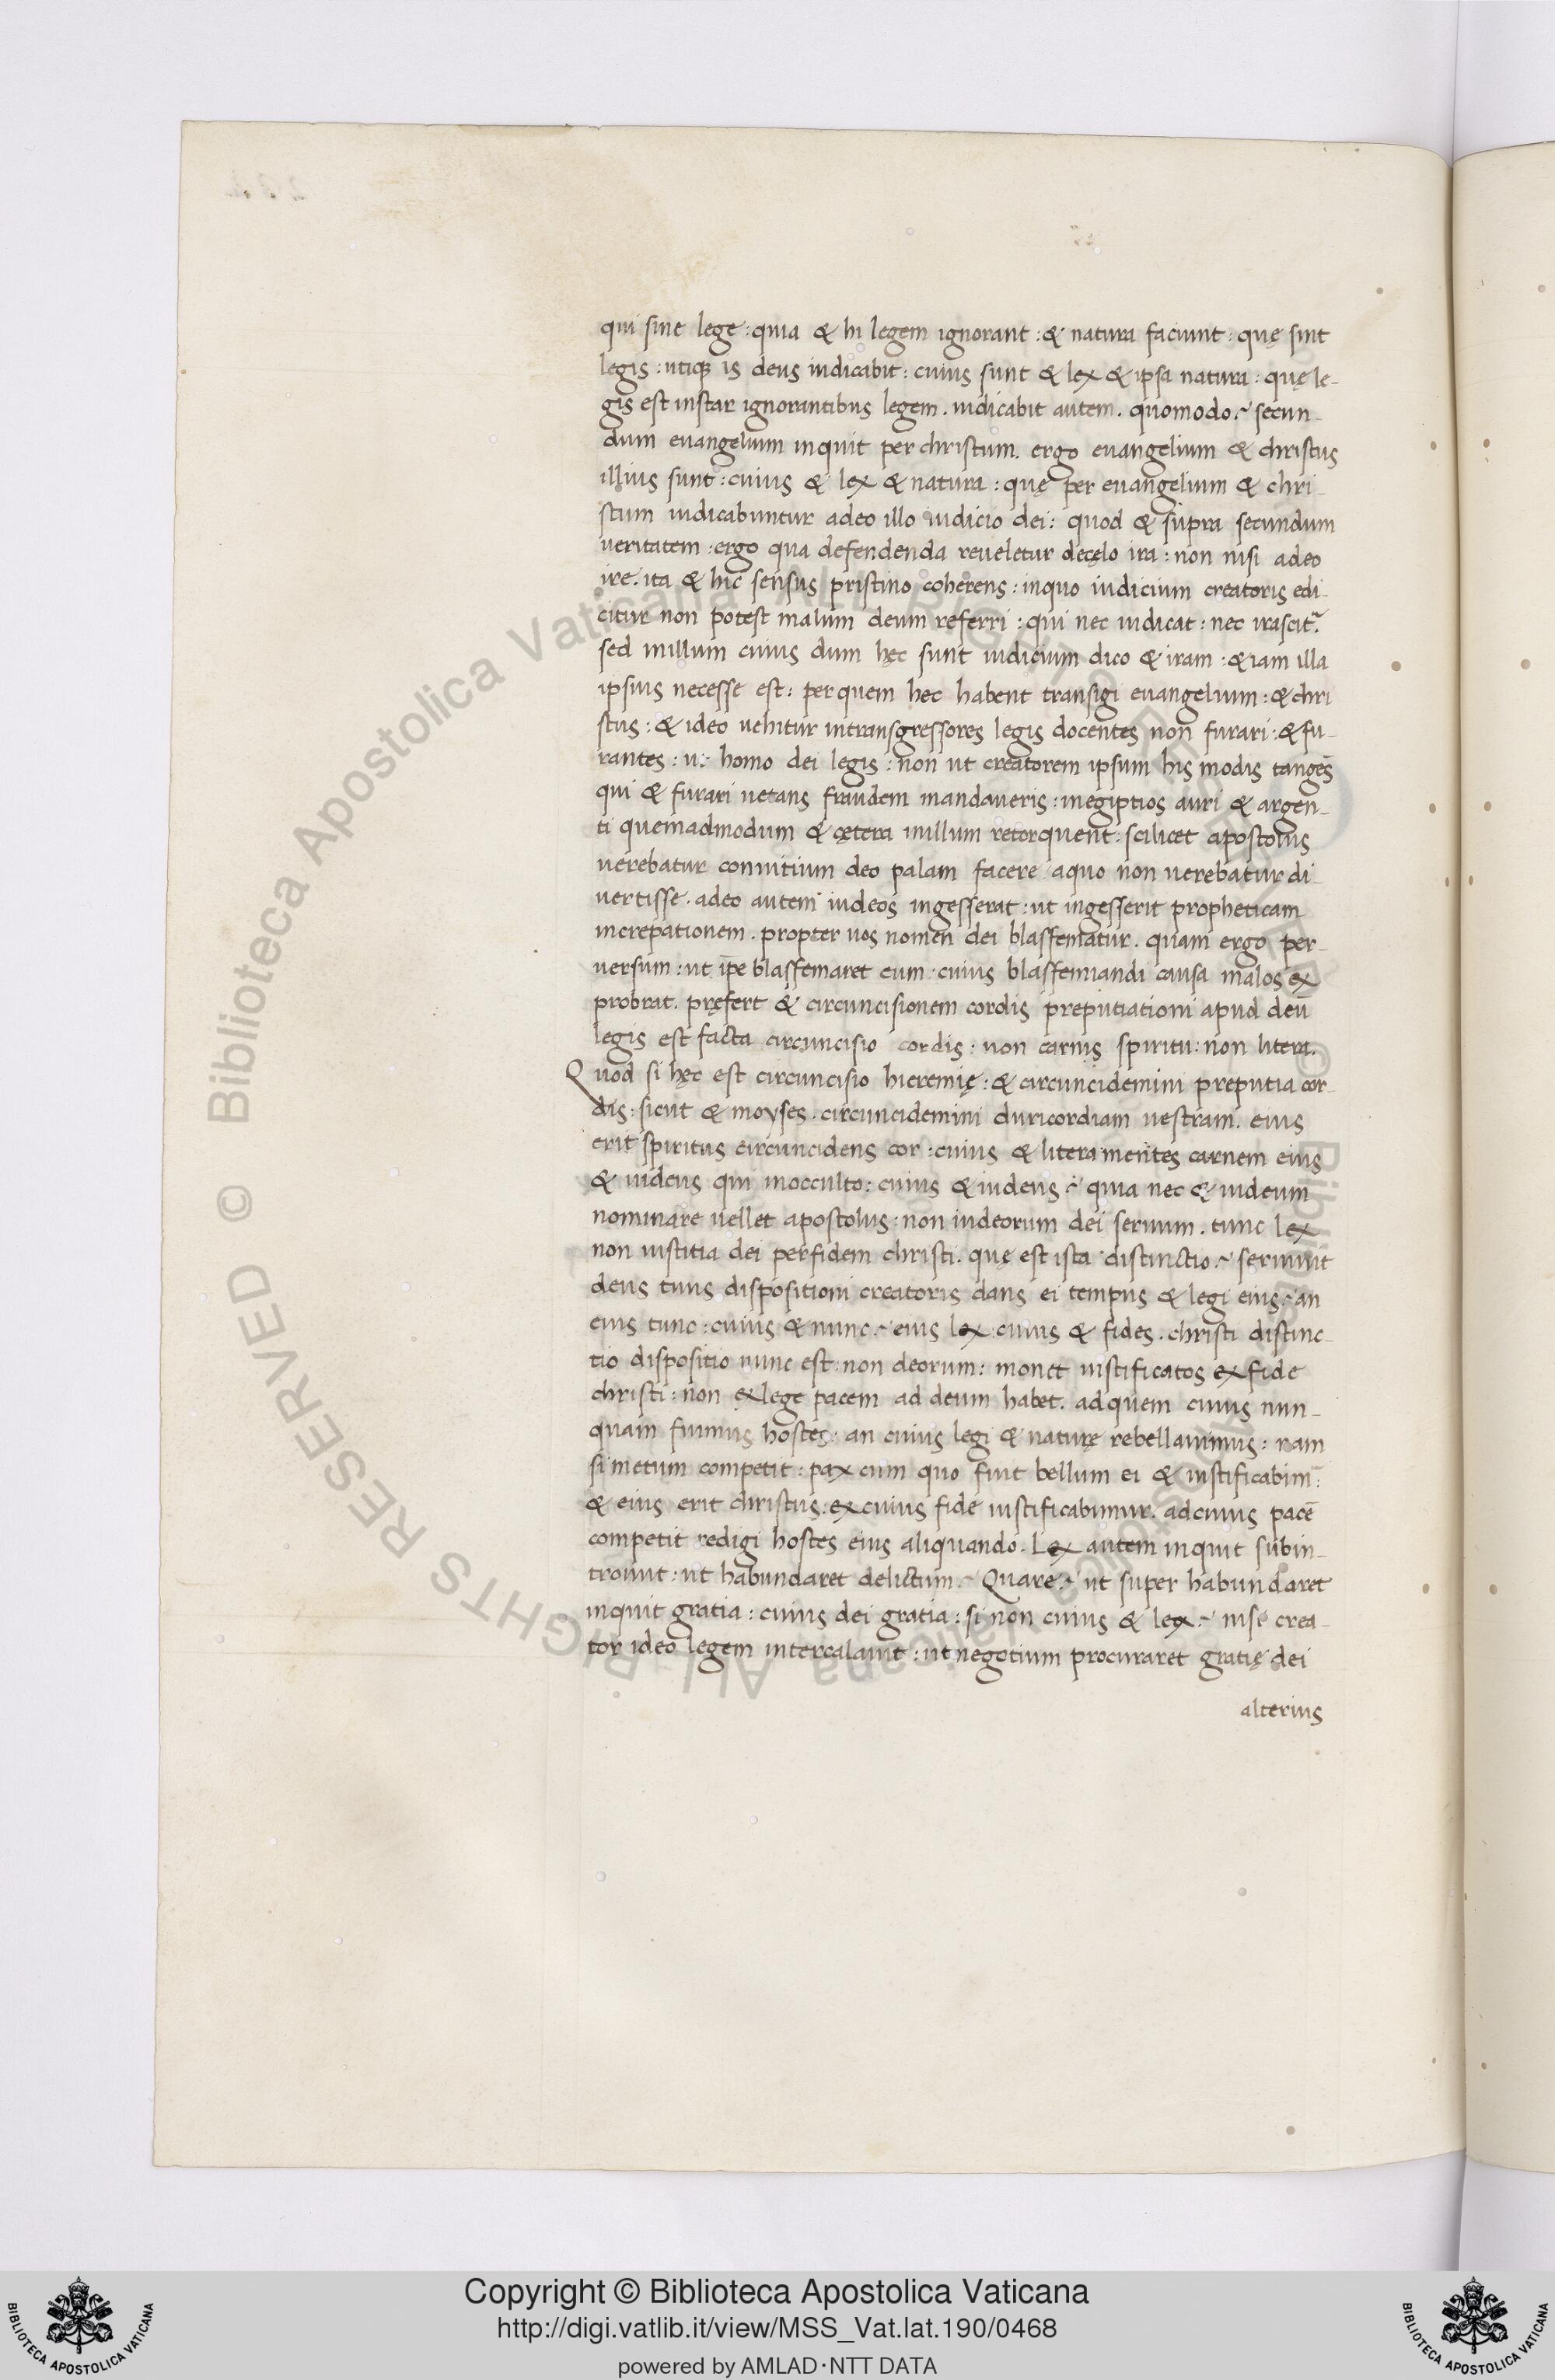 qui sine lege : quia & hi legem ignorant : & natura faciunt : quę sint
legis : utiqꝫ is deus iudicabit : cuius sunt & lex & ipsa natura : quę le-
gis est instar ignorantibus legem . iudicabit autem . quomodo ? secun-
dum euangelium inquit per christum . ergo euangelium & christus
illius sunt : cuius & lex & natura : quę per euangelium & chri-
stum iudicabuntur adeo illo iudicio dei : quod & supra secundum
ueritatem : ergo qua defendenda reueletur decęlo ira : non nisi adeo
ire . ita & hic sensus pristino coherens : inquo iudicium creatoris edi-
citur non potest malum deum referri : qui nec iudicat : nec irascit᷑ .
sed inillum cuius dum hęc sunt iudicium dico & iram : & iam illa
ipsius necesse est : per quem hec habent transigi euangelium : & chri
stus : & ideo uehitur intransgressores legis docentes non furari : & fu-
rantes : u . homo dei legis : non ut creatorem ipsum his modis tangēs
qui & furari uetans fraudem mandaueris : inegiptios auri & argen-
ti quemadmodum & cętera inillum retorquent : scilicet apostolus
uerebatur conuitium deo palam facere aquo non uerebatur di-
uertisse . adeo autem iudeos ingesserat : ut ingesserit propheticam
increpationem . propter uos nomen dei blasfematur . quam ergo per-
uersum : ut ip̄e blasfemaret eum : cuius blasfemandi causa malos ex
probrat . pręfert & circuncisionem cordis preputiationi apud deū
legis est facta circuncisio cordis : non carnis spiritu : non litera .
Quod si hęc est circuncisio hieremię : & circuncidemini preputia cor-
dis : sicut & moyses . circuncidemini duricordiam uestram . eius
erit spiritus circuncidens cor : cuius & litera mentes carnem eius
& iudeus qui inocculto : cuius & iudeus ? quia nec & iudeum
nominare uellet apostolus : non iudeorum dei seruum . tunc lex
non iustitia dei perfidem christi . quę est ista distinctio ? seruiuit
deus tuus dispositioni creatoris dans ei tempus & legi eius ? an
eius tunc : cuius & nunc ? eius lex : cuius & fides . christi distinc-
tio dispositio nunc est : non deorum : monet iustificatos ex fide
christi : non ex lege pacem ad deum habet . ad quem cuius nun-
quam fuimus hostes : an cuius legi & naturę rebellauimus : nam
si inetum competit : pax cum quo fuit bellum ei & iustificabim᷑ :
& eius erit christus : ex cuius fide iustificabimur . adcuius pacē
competit redigi hostes eius aliquando . Lex autem inquit subin-
troiuit : ut habundaret delictum . Quare ? ut super habundaret
inquit gratia : cuius dei gratia : si non cuius & lex ? nisi crea-
tor ideo legem intercalauit : ut negotium procuraret gratię dei
alterius
Copyright © Biblioteca Apostolica Vaticana
http://digi.vatlib.it/view/MSS_Vat.lat.190/0468
powered by AMLAD·NTT DATA
BIBLIOTECA APOSTOLICA VATICANA
BIBLIOTECA APOSTOLICA VATICANA
© Biblioteca Apostolica Vaticana ALL RIGHTS RESERVED